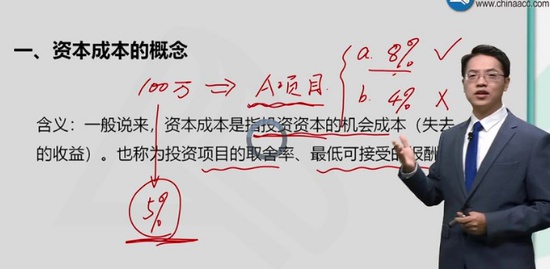 www.chinaacc.com
一、资本成本的概念
100万 ⇒ A项目
a. 8% ✓
b. 4% ✗
含义：一般说来，资本成本是指投资资本的机会成本（失去
的收益）。也称为投资项目的取舍率、最低可接受的报酬
5%